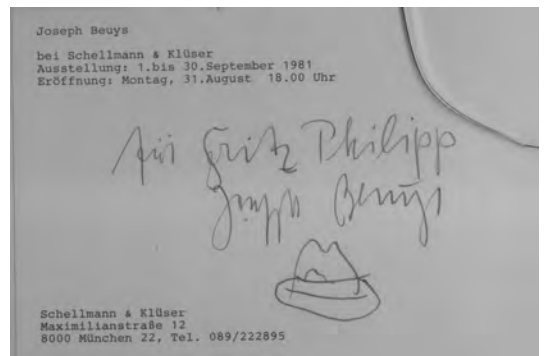 Joseph Beuys
bei Schellmann & Klüser
Ausstellung: 1.bis 30.September 1981
Eröffnung: Montag, 31.August 18.00 Uhr
für Fritz Philipp
Joseph Beuys
Schellmann & Klüser
Maximilianstraße 12
8000 München 22, Tel. 089/222895